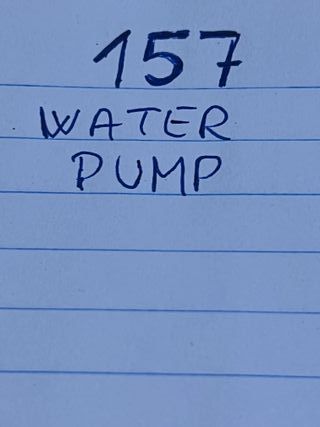 157
WATER
PUMP